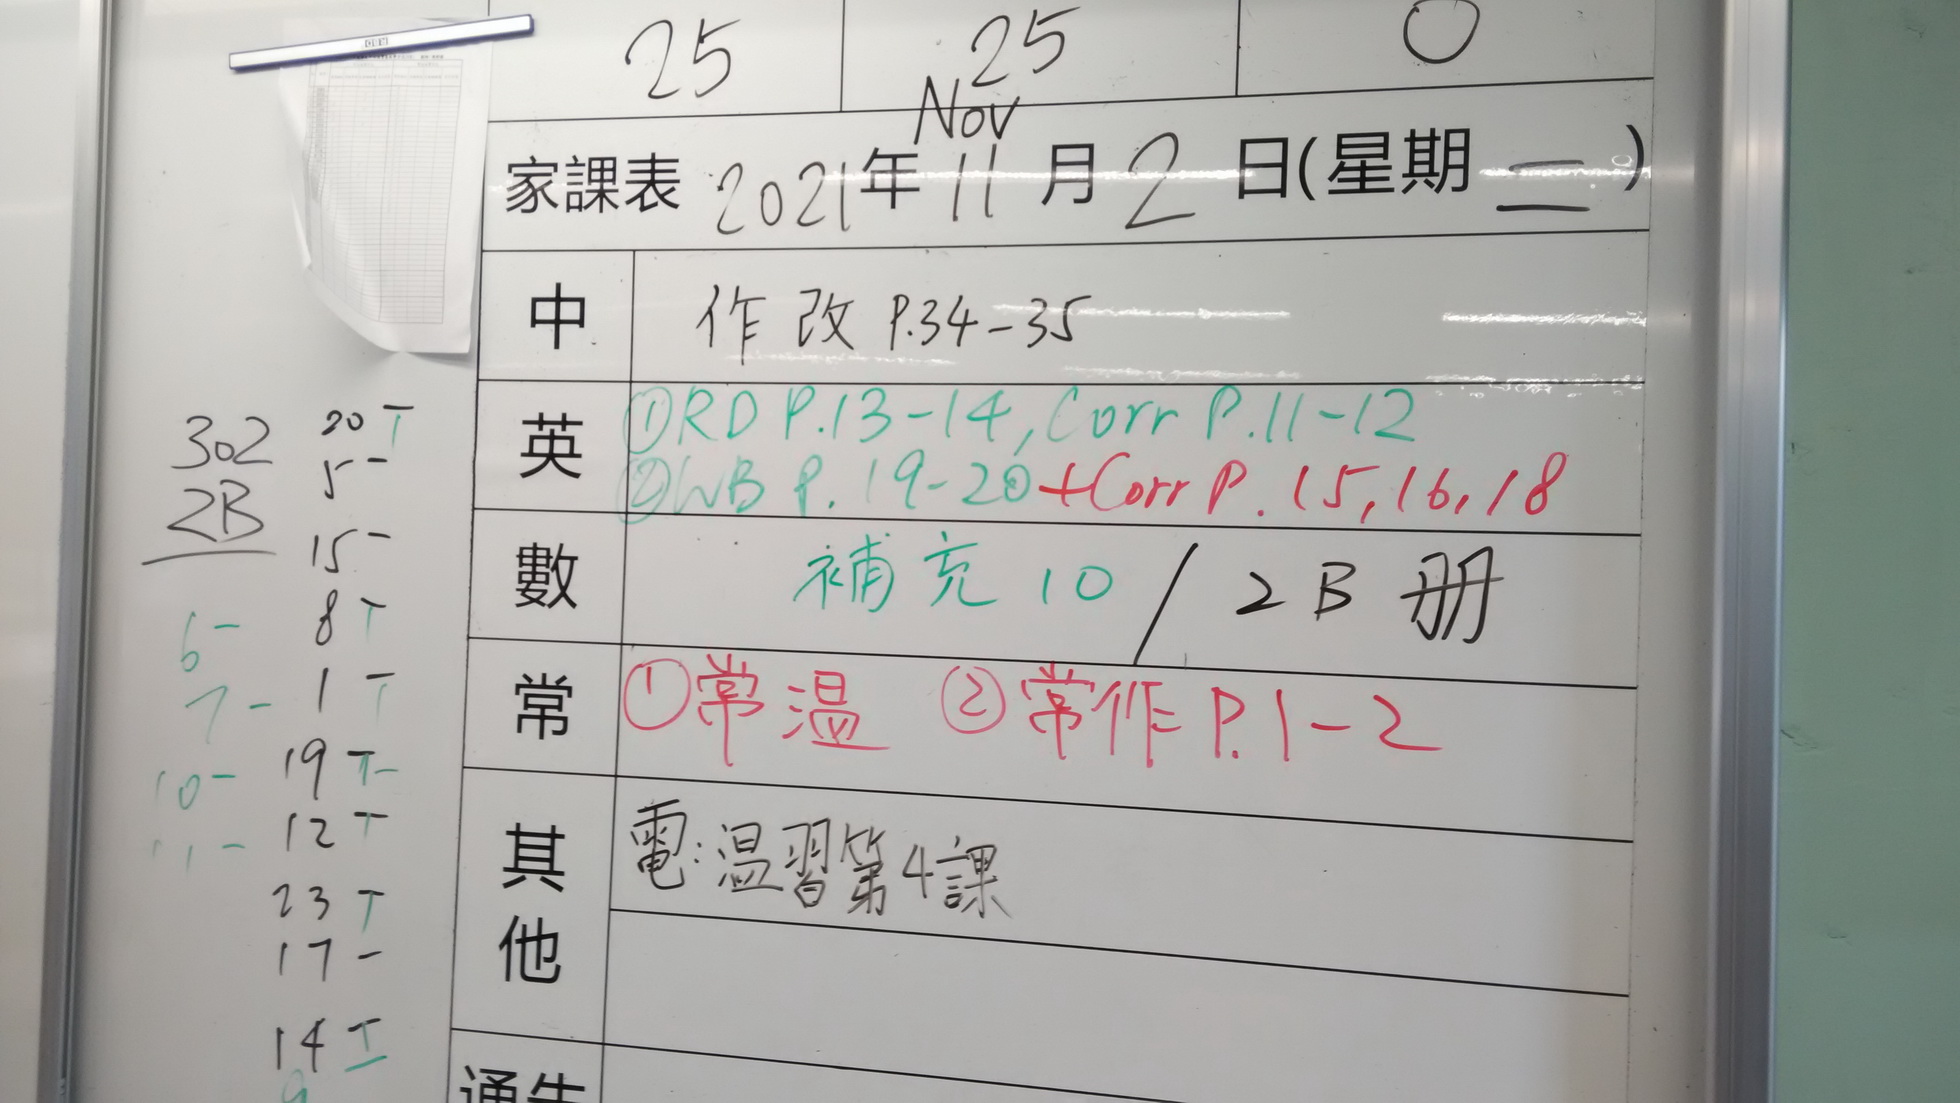 25 25 0
Nov
家課表 2021年 11 月 2 日(星期 二 )
中 作改 P.34-35
英 ①RD P.13-14, Corr P.11-12
②WB P. 19-20+Corr P. 15, 16, 18
數 補充 10 / 2B 册
常 ①常温 ②常作 P.1-2
其他 電:温習第4課
通告
302
2B
20 T
5 -
15 -
6 - 8 T
7 - 1 T
10 - 19 T-
11 - 12 T
23 T
17 -
14 T
9